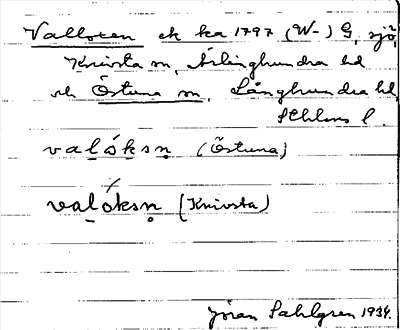 Valloxen ek ka 1797 (W-) G, sjö,
Knivsta sn, Ärlinghundra hd
och Östuna sn, Långhundra hd,
Sthlms l.
valóksṇ (Östuna)
valóksṇ (Knivsta)
Jöran Sahlgren 1934.